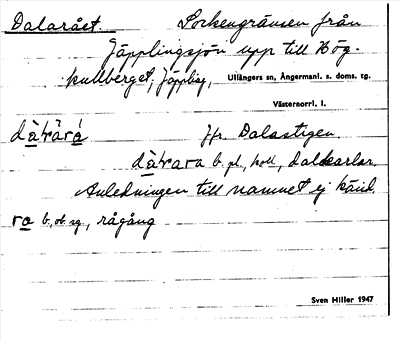 Dalarået Sockengränsen från
Jäpplingsjön upp till Hög-
kullberget, Jäppling, Ullångers sn, Ångermanl. s. doms. tg.
Västernorrl. l.
dàrará Jfr. Dalastigen.
dàrara b. pl., koll., dalkarlar.
Anledningen till namnet ej känd.
ro b., ob. sg., rågång
Sven Hiller 1947